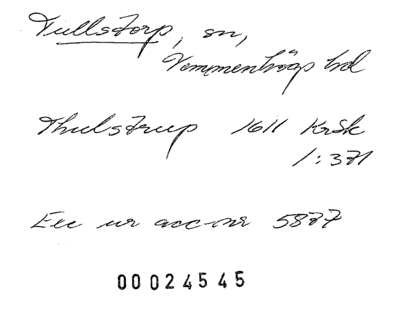 Tullstorp, sn,
Vemmenhögs hd
Thulstrup 1611 KrSk
1:371
Exc ur acc-nr 5877
00024545